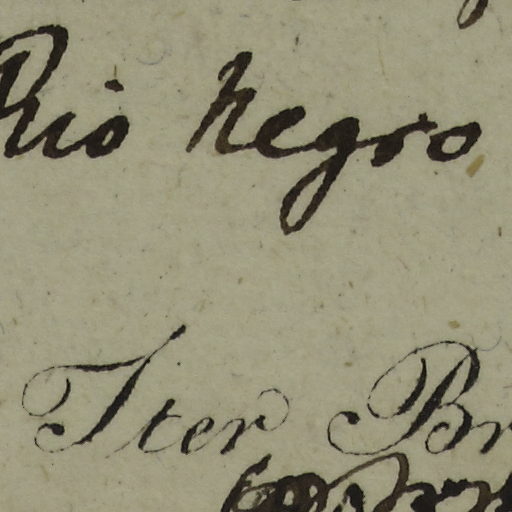 Rio Negro
Iter Br